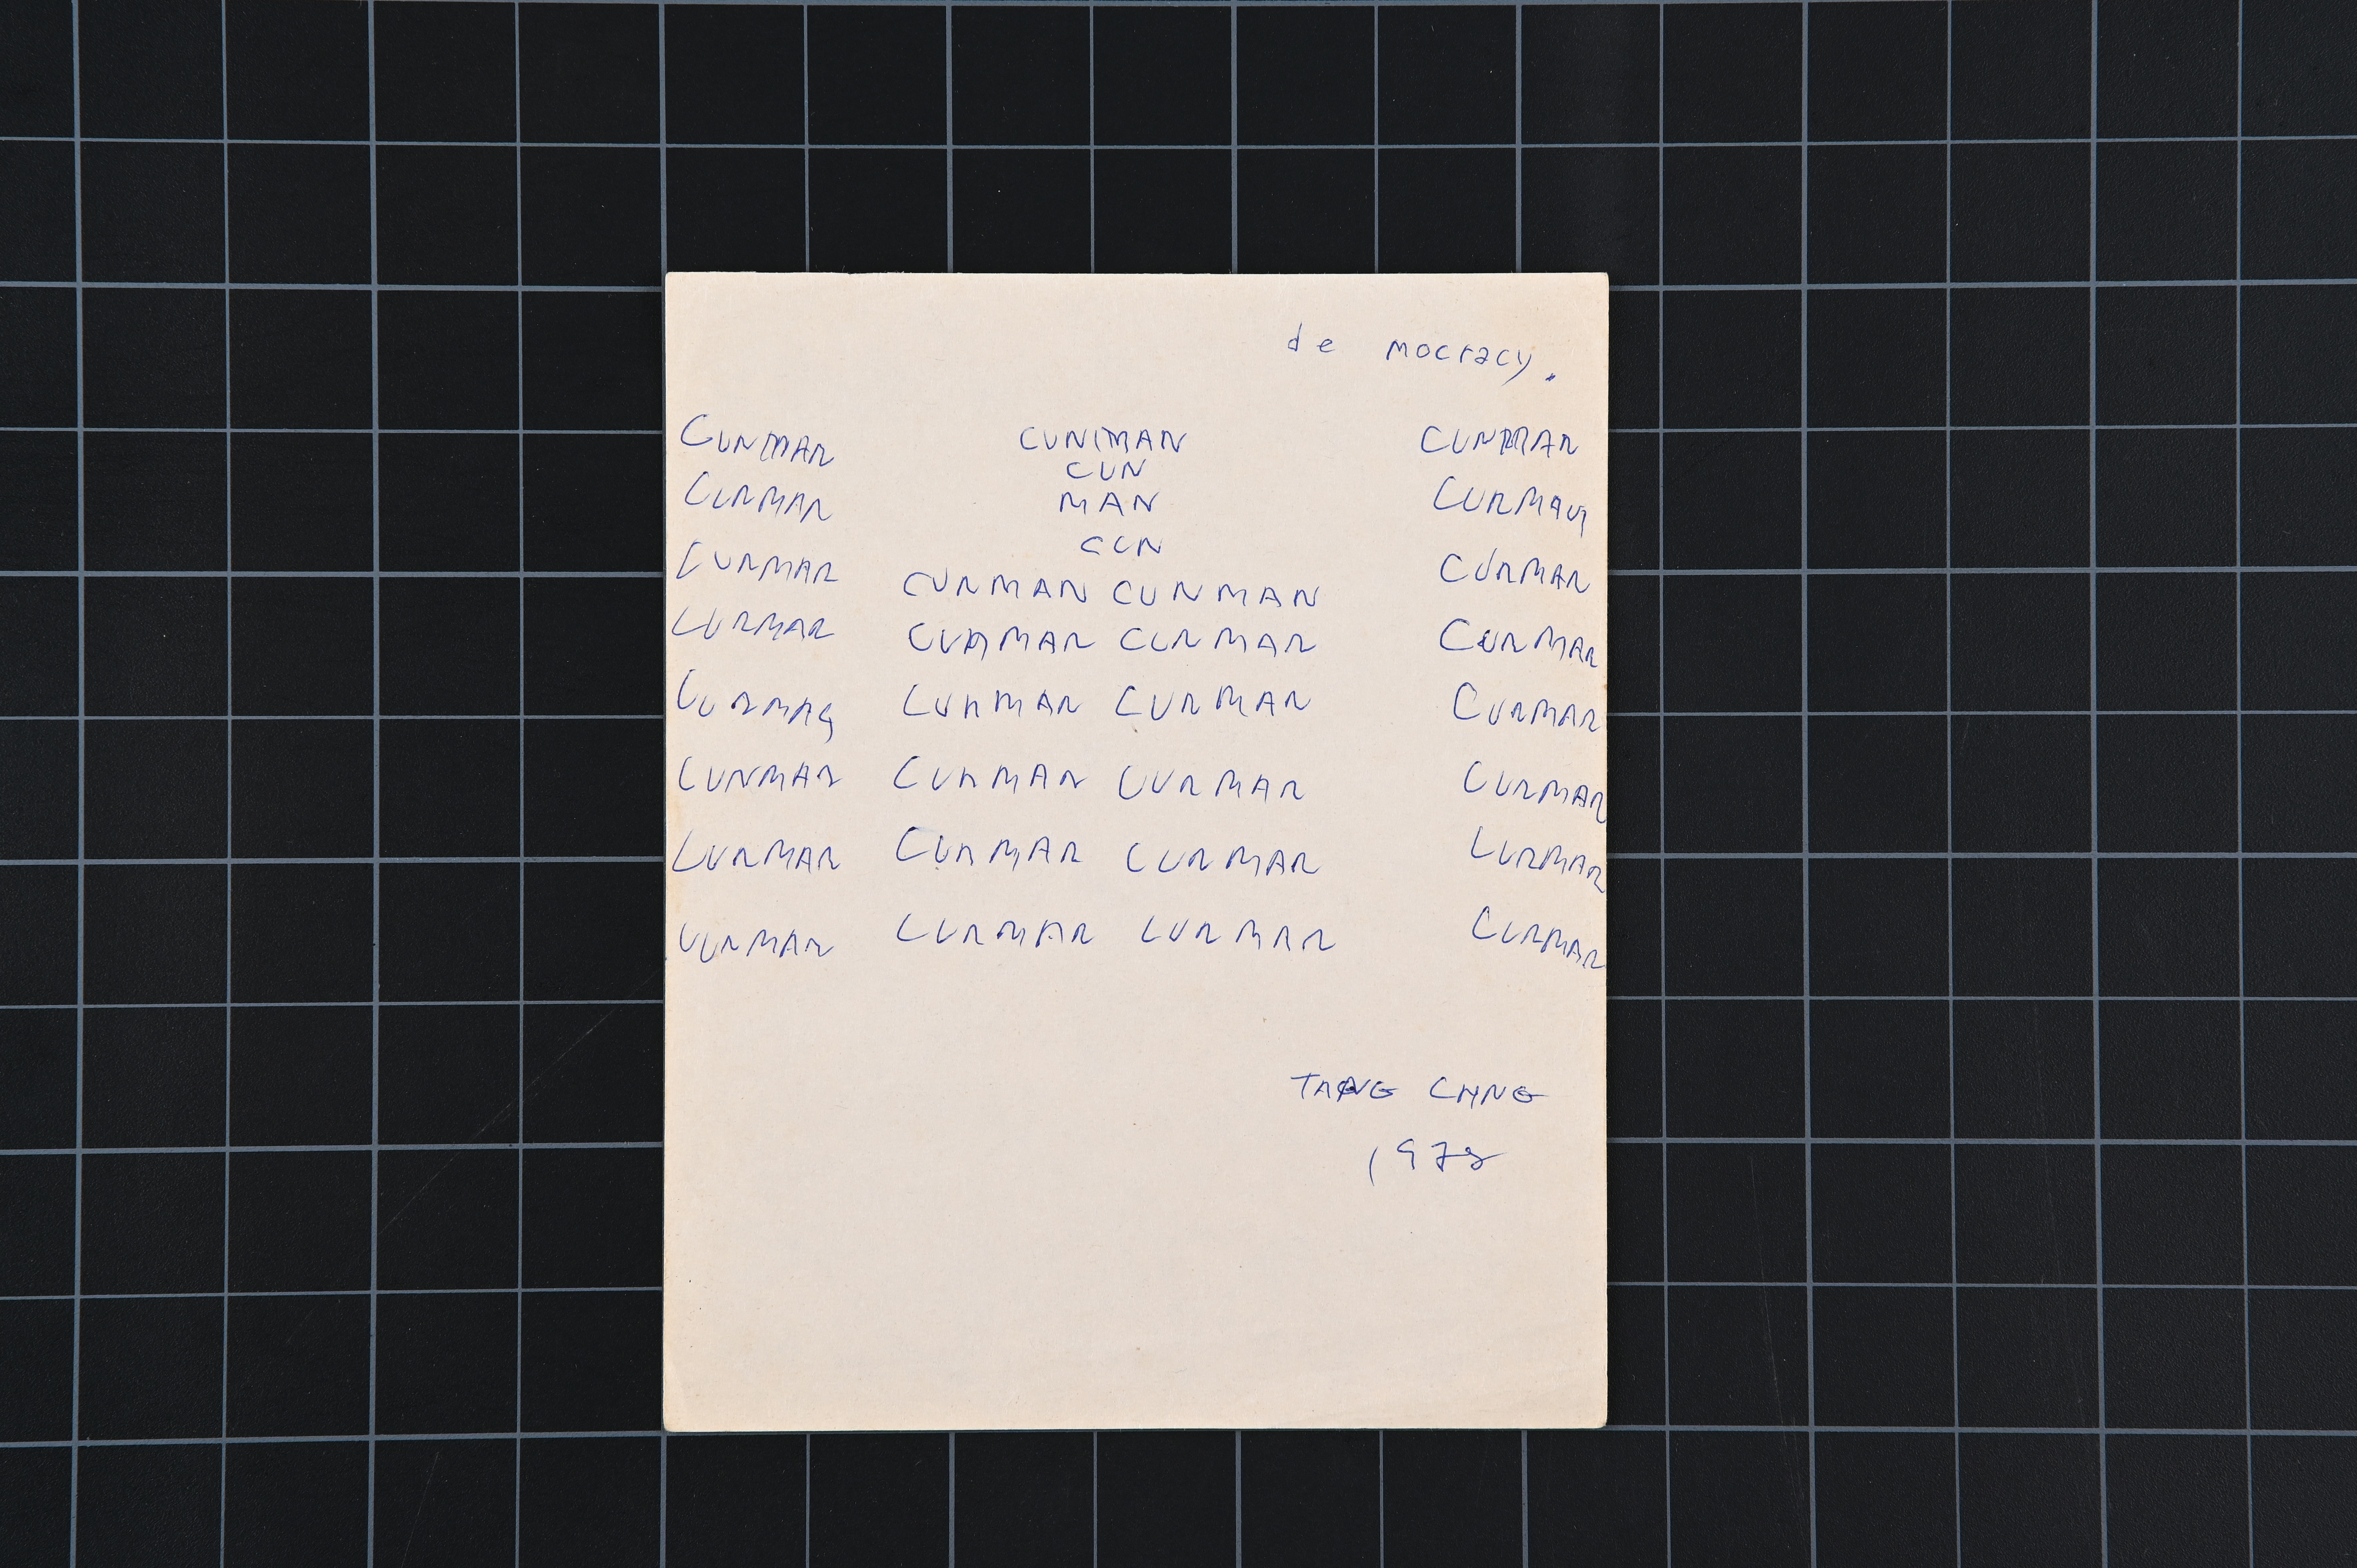 de mocracy.
CUNMAN CUNMAN CUNMAN
CUN
CUNMAN MAN CUNMAN
CUN
CUNMAN CUNMAN
CUNMAN CUNMAN
CUNMAN CUNMAN CUNMAN CUNMAN
CUNMAN CUNMAN CUNMAN CUNMAN
CUNMAN CUNMAN CUNMAN CUNMAN
CUNMAN CUNMAN CUNMAN CUNMAN
CUNMAN CUNMAN CUNMAN CUNMAN
TANG CHNG
1978